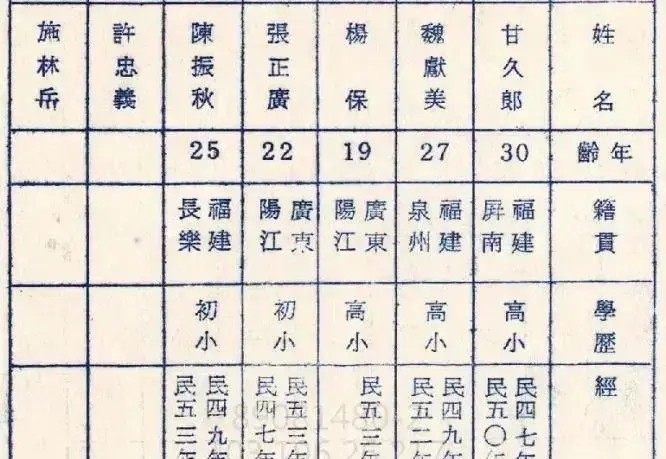 姓名
年齡
籍貫
學歷
經
甘久郎
30
福建
屏南
高小
民四七年
民五〇年
魏獻美
27
福建
泉州
高小
民四九年
民五二年
楊保
19
廣東
陽江
高小
民五三年
張正廣
22
廣東
陽江
初小
民五三年
民四七年
陳振秋
25
福建
長樂
初小
民四九年
民五三年
許忠義
施林岳